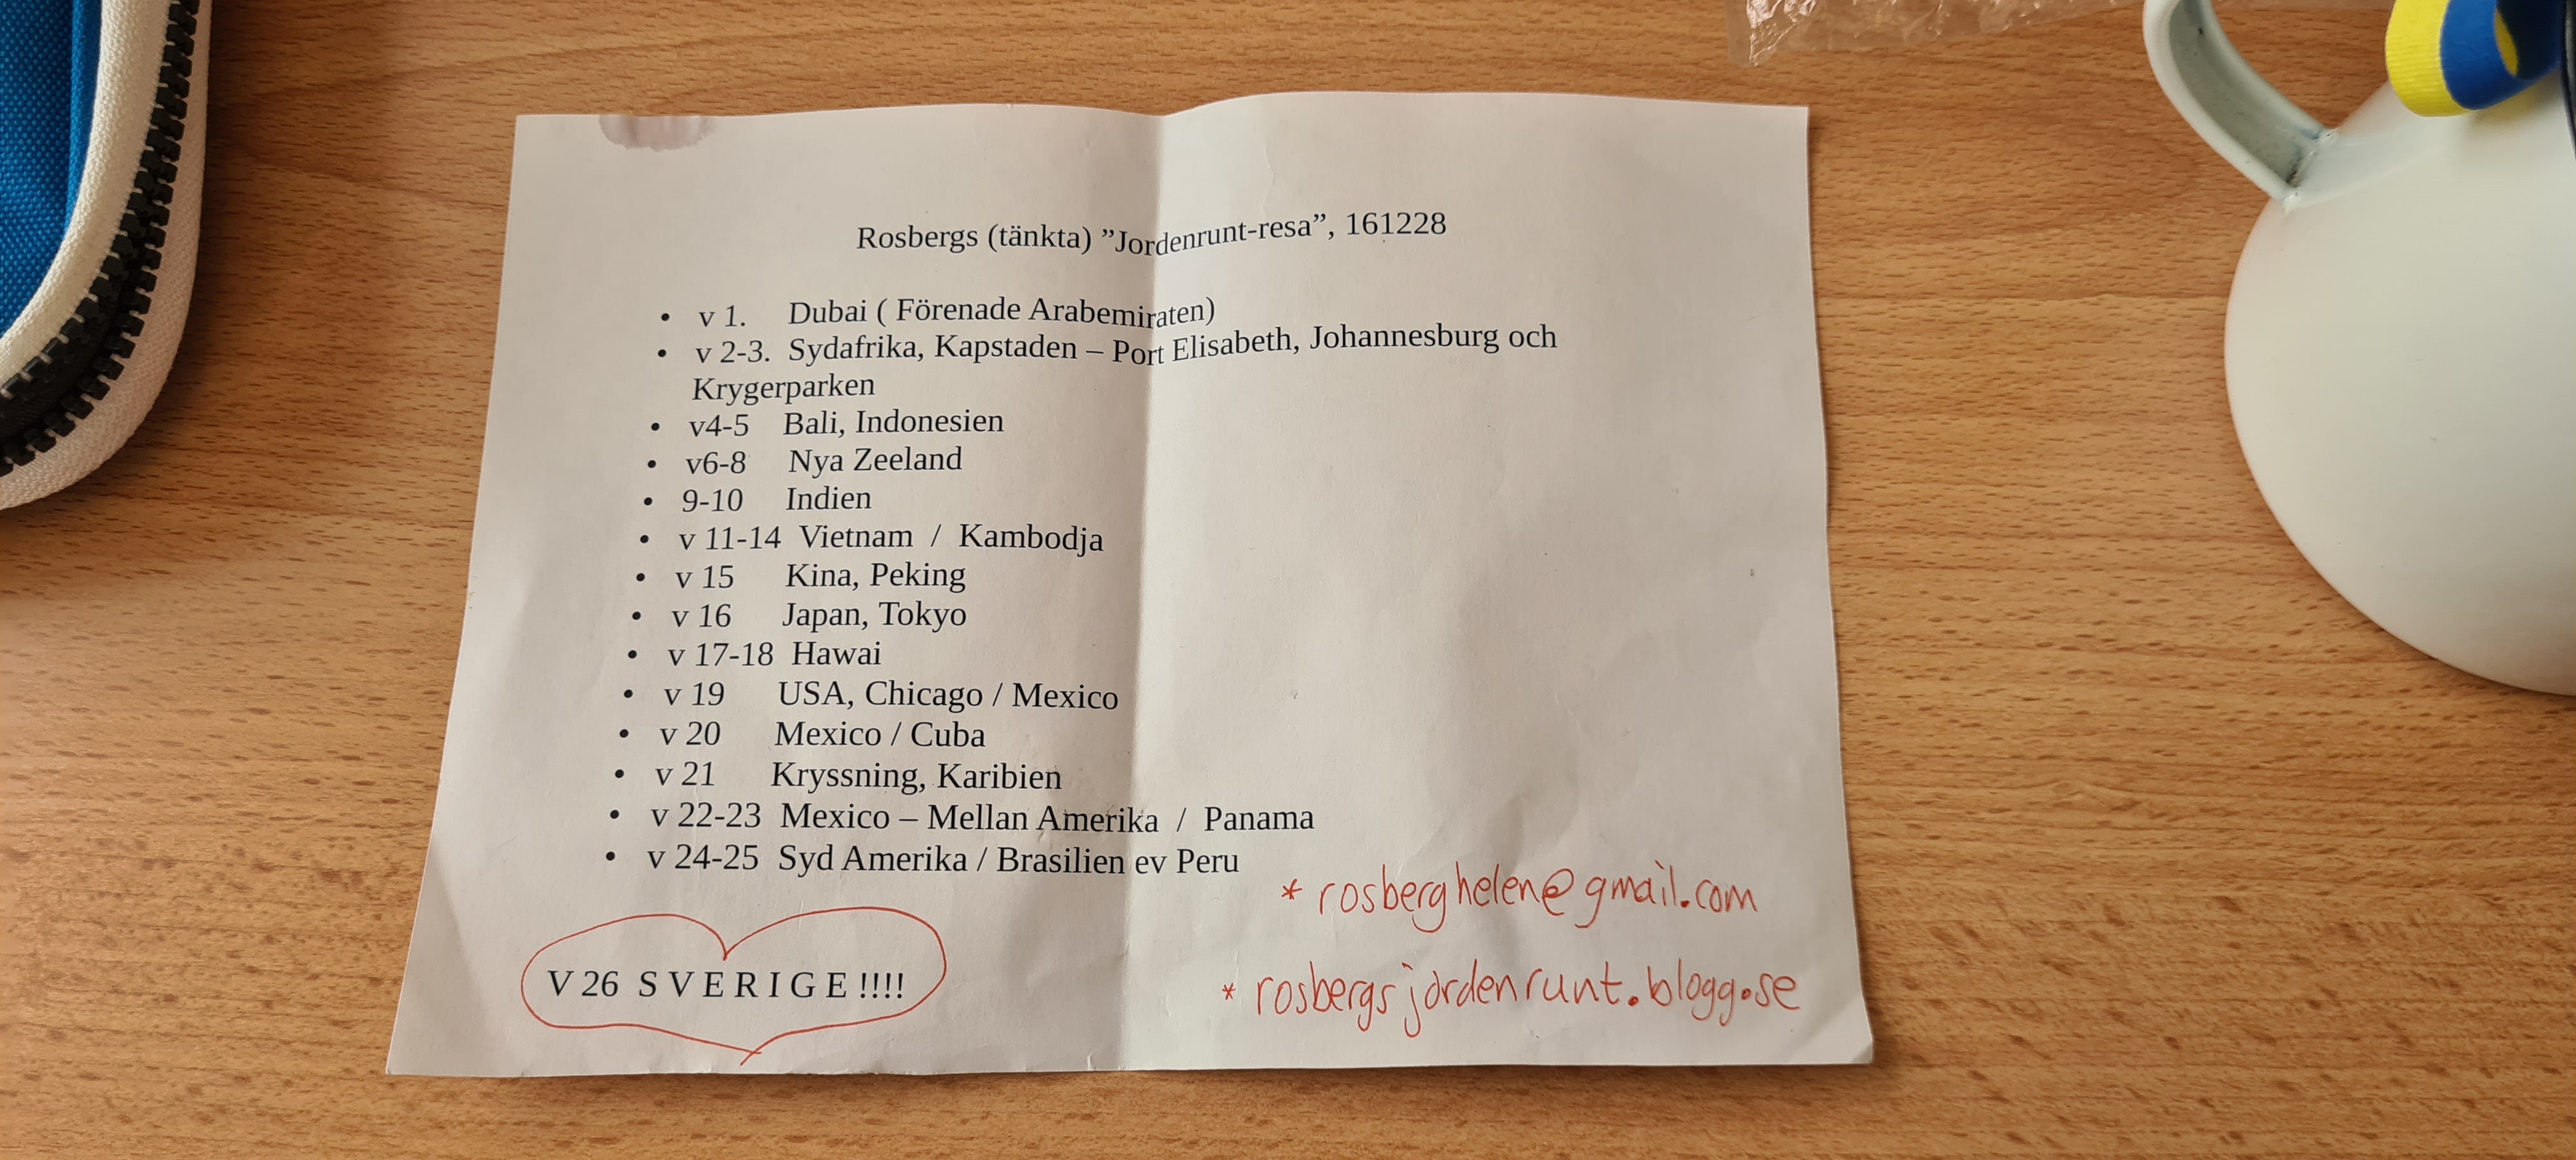 Rosbergs (tänkta) ”Jordenrunt-resa”, 161228
• v 1. Dubai ( Förenade Arabemiraten)
• v 2-3. Sydafrika, Kapstaden – Port Elisabeth, Johannesburg och
Krygerparken
• v4-5 Bali, Indonesien
• v6-8 Nya Zeeland
• 9-10 Indien
• v 11-14 Vietnam / Kambodja
• v 15 Kina, Peking
• v 16 Japan, Tokyo
• v 17-18 Hawai
• v 19 USA, Chicago / Mexico
• v 20 Mexico / Cuba
• v 21 Kryssning, Karibien
• v 22-23 Mexico – Mellan Amerika / Panama
• v 24-25 Syd Amerika / Brasilien ev Peru
* rosberghelen@gmail.com
V 26 S V E R I G E !!!!
* rosbergsjordenrunt.blogg.se